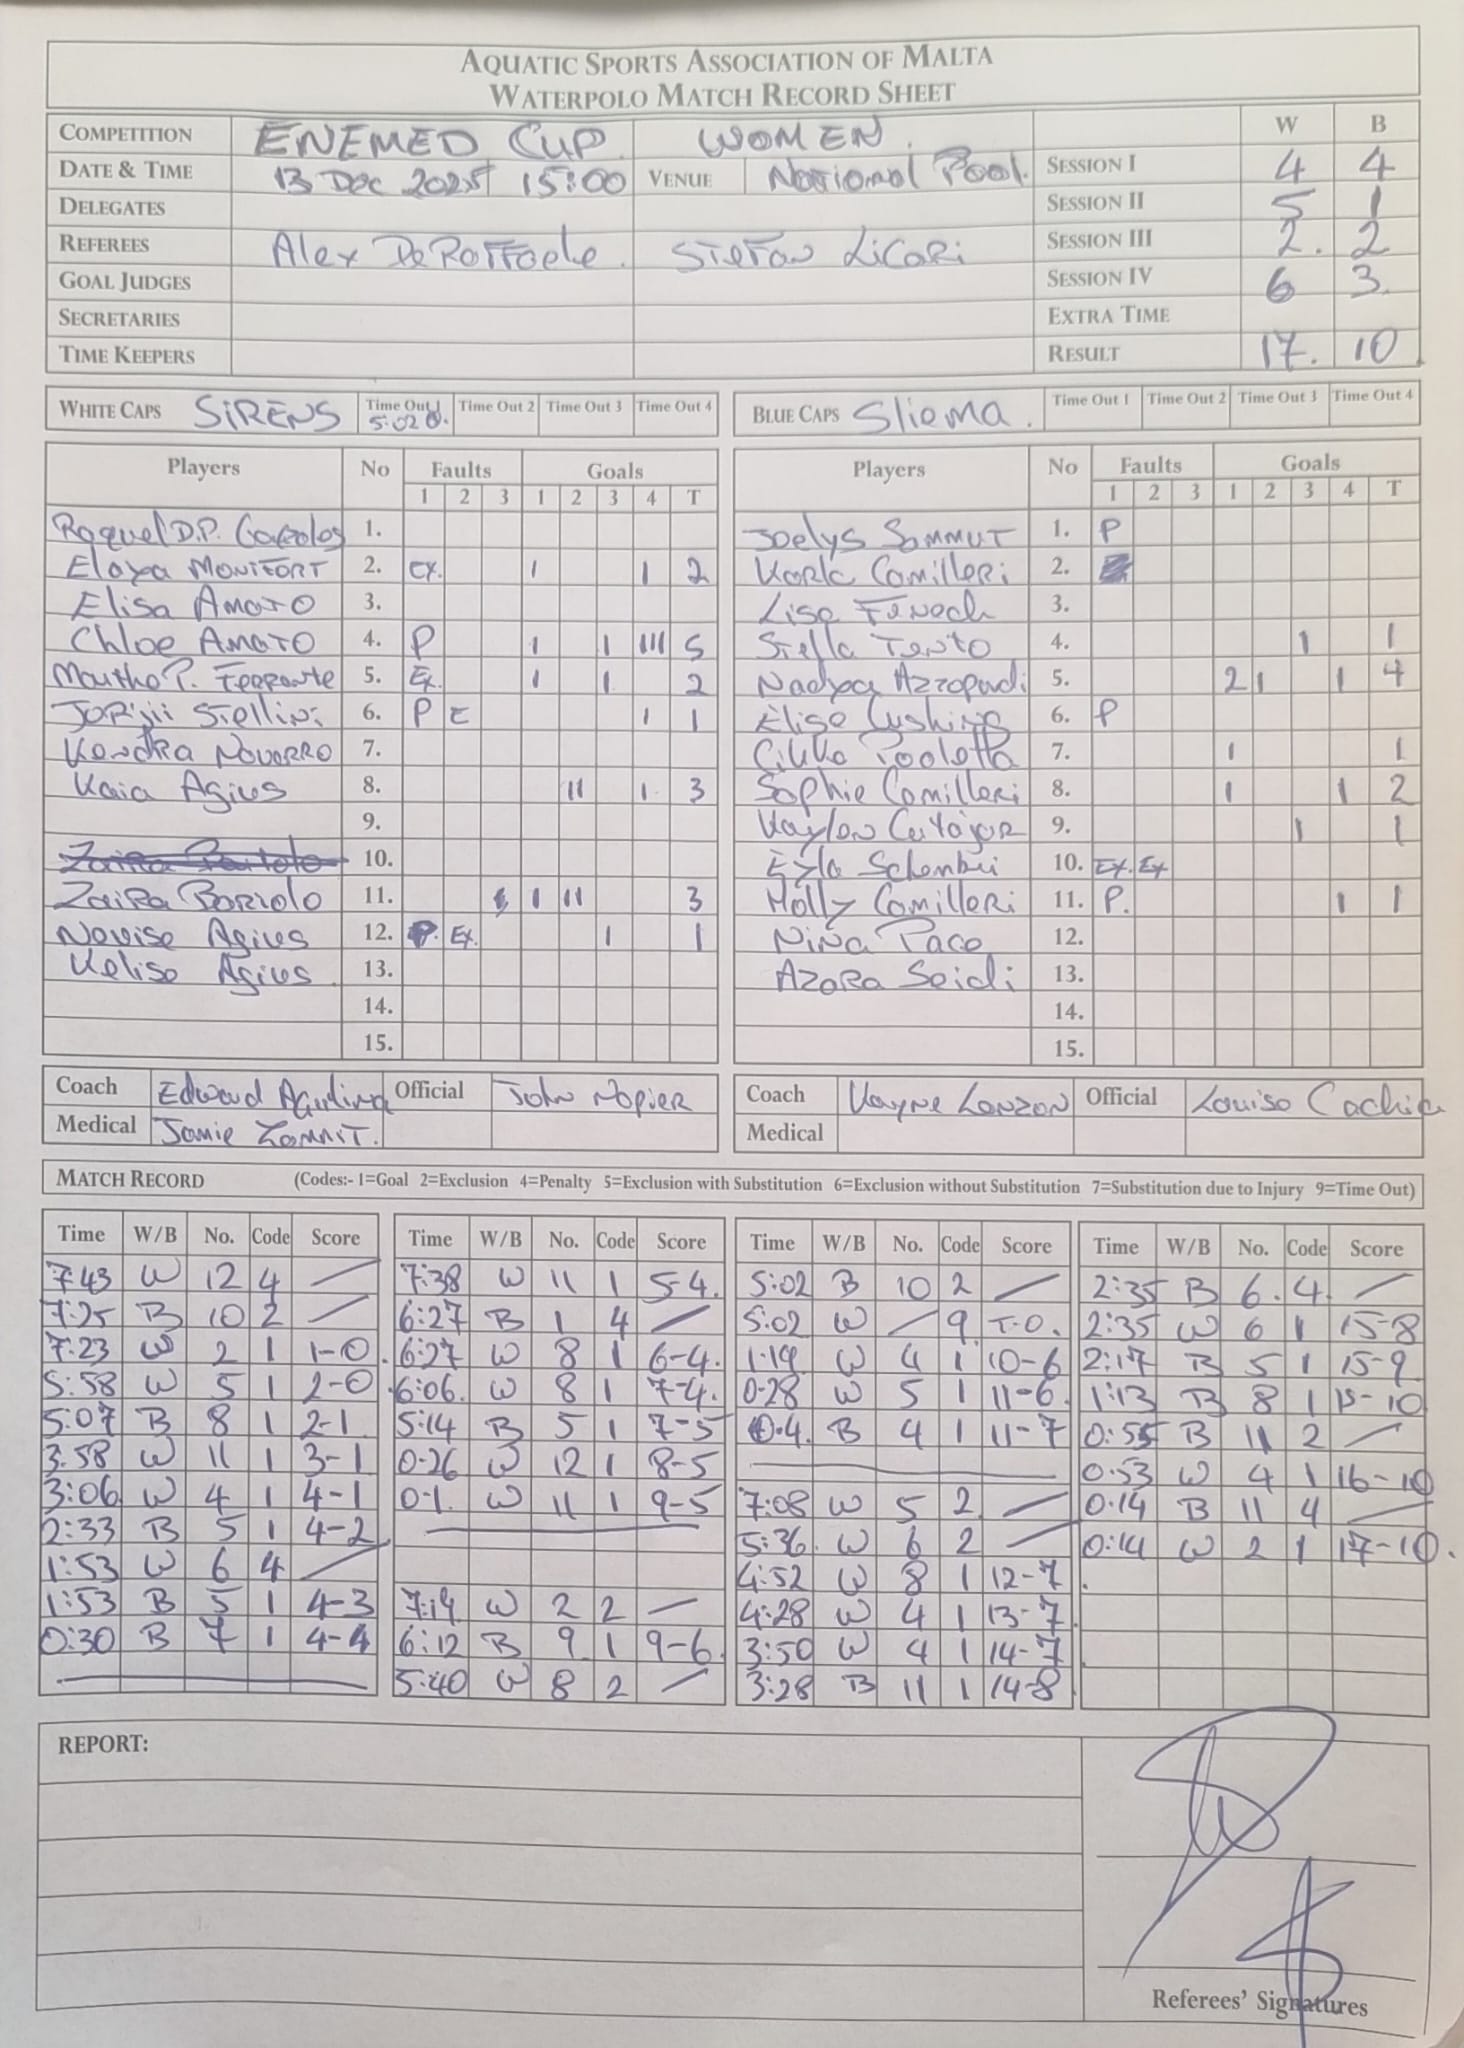 AQUATIC SPORTS ASSOCIATION OF MALTA
WATERPOLO MATCH RECORD SHEET
COMPETITION ENEMED CUP WOMEN W B
DATE & TIME 13 Dec 2025 15:00 VENUE National Pool. SESSION I 4 4
DELEGATES SESSION II 5 1
REFEREES Alex DeRaffaele. Stefan Licari SESSION III 2. 2
GOAL JUDGES SESSION IV 6 3.
SECRETARIES EXTRA TIME
TIME KEEPERS RESULT 17. 10
WHITE CAPS SIRENS Time Out 1 5:02 Time Out 2 Time Out 3 Time Out 4
BLUE CAPS Sliema. Time Out 1 Time Out 2 Time Out 3 Time Out 4
Players No Faults Goals
1 2 3 1 2 3 4 T
Raquel D.P. 1.
Eloxa MONTFORT 2. EX. I I 2
Elisa AMATO 3.
Chloe AMATO 4. P I I III 5
Martha P. Ferrante 5. Ex. I I 2
Jorjii Stellini 6. P E I 1
Kendra NOVARRO 7.
Kaia Agius 8. II I 3
9.
10.
Zaira Bartolo 11. I II 3
Agius 12. Ex. I 1
Kelise Agius 13.
14.
15.
Players No Faults Goals
1 2 3 1 2 3 4 T
Joelys SAMMUT 1. P
Karla Camilleri 2.
Lisa Fenech 3.
Stella Tanto 4. I 1
Azzopardi 5. 2 I I 4
Elise Cushing 6. P
7. I 1
Sophie Camilleri 8. I I 2
Kaylon Cutajar 9. I 1
Schembri 10. Ex. Ex
Holly Camilleri 11. P. I 1
Nina Pace 12.
Azara Saidi 13.
14.
15.
Coach Edward Aquilina Official John Napier
Medical Jamie Zammit.
Coach Kayne Lanzon Official Louisa Cachia
Medical
MATCH RECORD (Codes:- 1=Goal 2=Exclusion 4=Penalty 5=Exclusion with Substitution 6=Exclusion without Substitution 7=Substitution due to Injury 9=Time Out)
Time W/B No. Code Score
7:43 W 12 4 —
7:25 B 10 2 —
7:23 W 2 1 1-0
5:58 W 5 1 2-0
5:07 B 8 1 2-1
3:58 W 11 1 3-1
3:06 W 4 1 4-1
2:33 B 5 1 4-2
1:53 W 6 4 —
1:53 B 5 1 4-3
0:30 B 7 1 4-4
Time W/B No. Code Score
7:38 W 11 1 5-4.
6:27 B 1 4 —
6:27 W 8 1 6-4.
6:06. W 8 1 7-4.
5:14 B 5 1 7-5
0:26 W 12 1 8-5
0:1. W 11 1 9-5
7:19 W 2 2 —
6:12 B 9 1 9-6
5:40 W 8 2 —
Time W/B No. Code Score
5:02 B 10 2 —
5:02 W — 9 T.O.
1:19 W 4 1 10-6
0:28 W 5 1 11-6.
0.4. B 4 1 11-7
7:08 W 5 2 —
5:36. W 6 2 —
4:52 W 8 1 12-7
4:28 W 4 1 13-7
3:50 W 4 1 14-7
3:28 B 11 1 14-8
Time W/B No. Code Score
2:35 B 6. 4. —
2:35 W 6 1 15-8
2:17 B 5 1 15-9
1:13 B 8 1 15-10
0:55 B 11 2 —
0:53 W 4 1 16-10
0:14 B 11 4 —
0:14 W 2 1 17-10.
REPORT:
Referees' Signatures